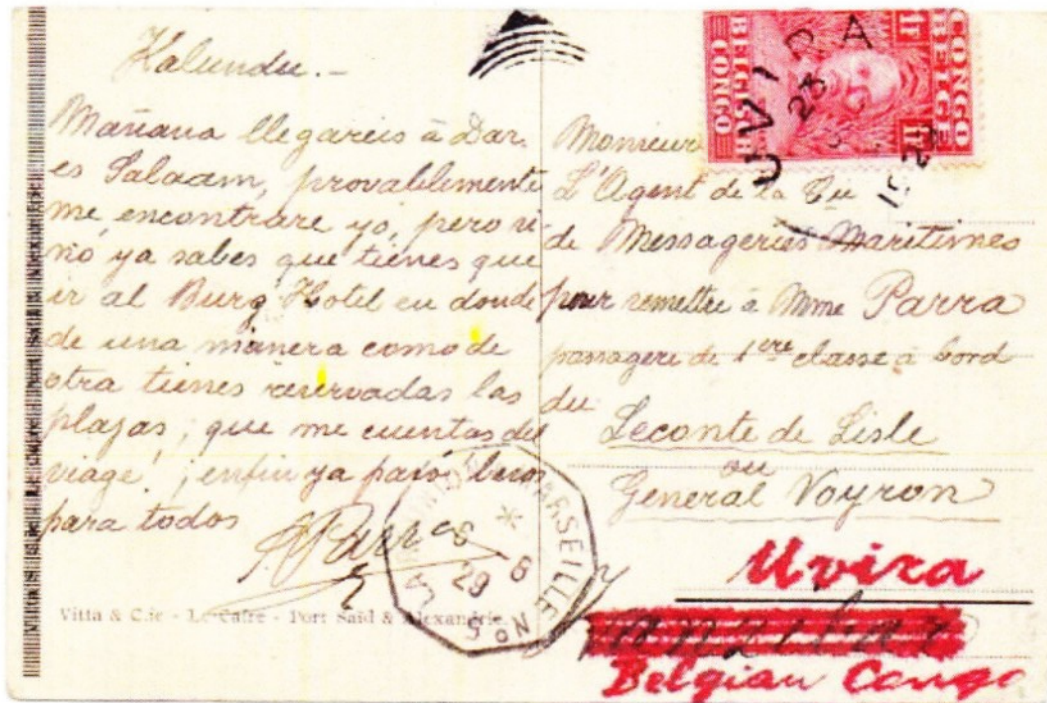 Kalundu.-
Mañana llegareis à Dar.
es Salaam, provablemente
me encontrare yo, pero si
no ya sabes que tienes que
ir al Burg Hotel en donde
de una manera como de
otra tienes reservadas las
plazas, que me cuentas del
viage!, ¡enfin ya pasó besos
para todos
Parra
Vitta & C.ie - Le Caire - Port Said & Alexandrie.
CONGO BELGE
BELGISCH CONGO
1F
1Fr
UVIRA
23
1929
Monsieur
L'Agent de la Cie
de Messageries Maritimes
pour remettre à Mme Parra
passagere de 1ere classe à bord
du
Leconte de Lisle
ou
General Voyron
Uvira
Zanzibar
Belgian Congo
MARSEILLE
LA
Nº 5
8
6
29